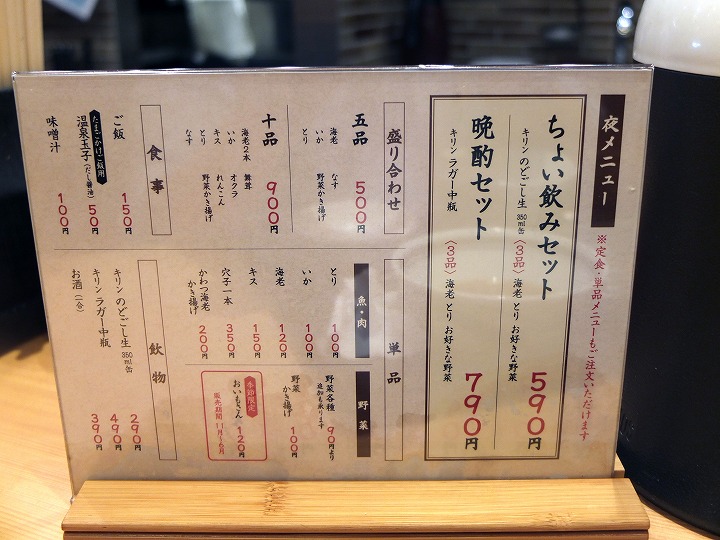 夜メニュー
※定食・単品メニューもご注文いただけます
ちょい飲みセット
キリン のどごし生 350ml缶
〈3品〉 海老 とり お好きな野菜
590円
晩酌セット
キリン ラガー中瓶
〈3品〉 海老 とり お好きな野菜
790円
盛り合わせ
五品
海老 なす
いか 野菜かき揚げ
とり
500円
十品
海老2本 舞茸
いか オクラ
キス れんこん
とり 野菜かき揚げ
なす
900円
食事
ご飯 150円
たまごかけご飯用
温泉玉子(だし醤油) 50円
味噌汁 100円
単品
魚・肉
とり 100円
いか 100円
海老 120円
キス 150円
穴子一本 350円
かわつ海老かき揚げ 200円
野菜
野菜各種 90円より
追加も承ります
野菜かき揚げ 100円
季節限定
おいもさん 120円
販売期間 11月〜6月
飲物
キリン のどごし生 350ml缶 290円
キリン ラガー中瓶 490円
お酒(一合) 390円